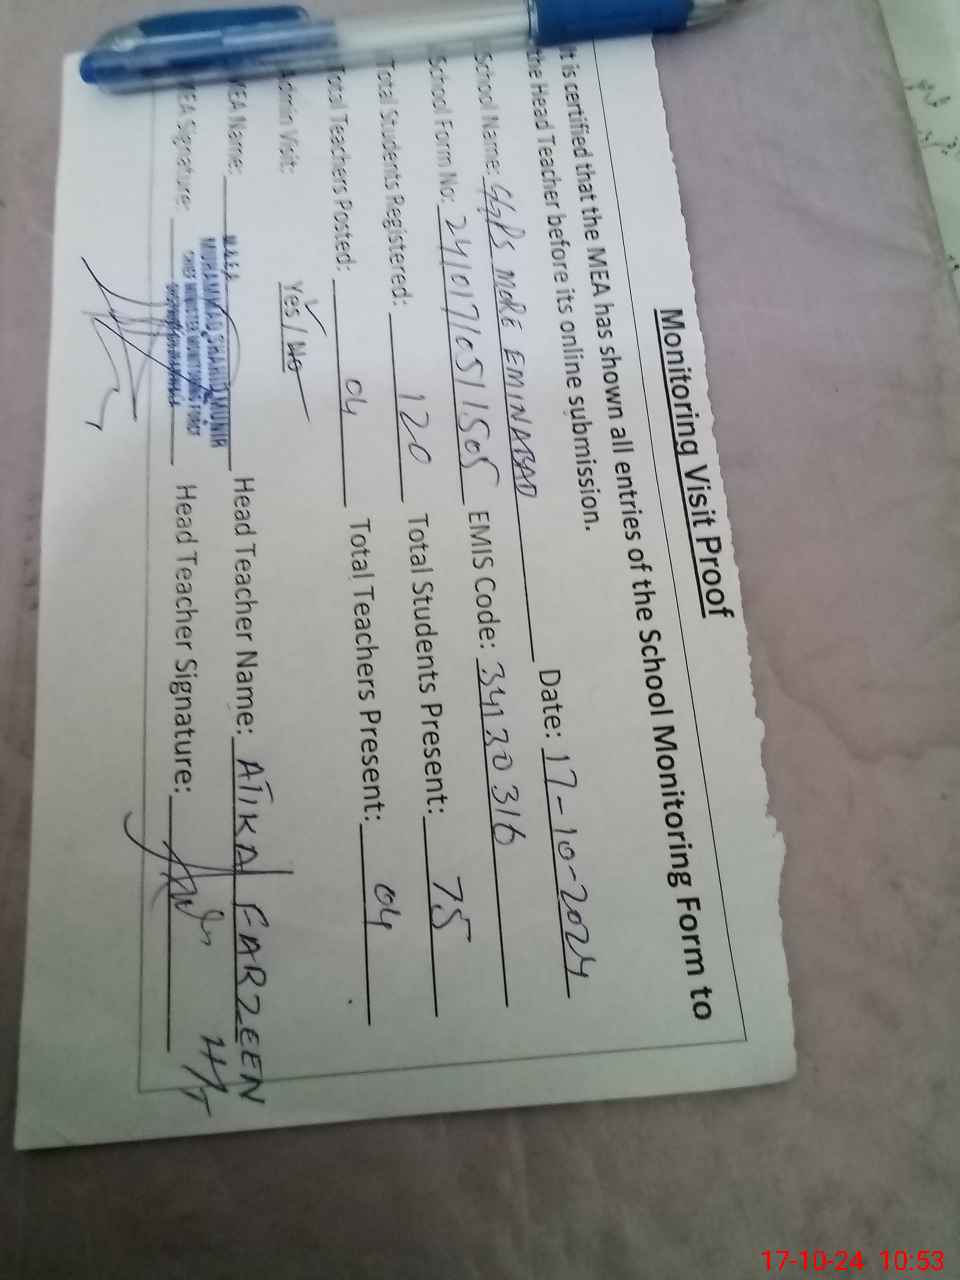 Monitoring Visit Proof
It is certified that the MEA has shown all entries of the School Monitoring Form to
the Head Teacher before its online submission.
School Name: GGPS MORE EMINABAD Date: 17-10-2024
School Form No: 2410171051505 EMIS Code: 34130316
Total Students Registered: 120 Total Students Present: 75
Total Teachers Posted: 04 Total Teachers Present: 04
Admin Visit: Yes / No
MEA Name: M.E.A MUHAMMAD SHAHID MUNIR Head Teacher Name: ATIKA FARZEEN
CHIEF MINISTER MONITORING FORCE
MEA Signature: Head Teacher Signature: H/T
17-10-24 10:53